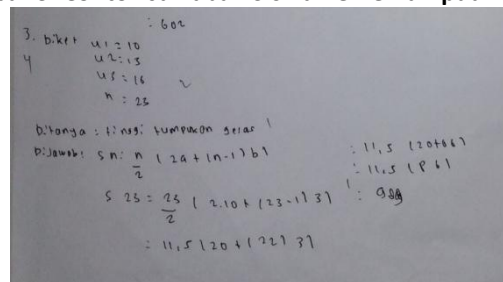 : 602
3. Diket u1 = 10
4 u2 = 13
u3 = 16
n = 23
Ditanya : tinggi tumpukan gelas !
Dijawab : Sn : n/2 (2a + (n-1) b)
S 23 = 23/2 (2.10 + (23-1) 3)
= 11,5 (20 + (22) 3)
: 11,5 (20+66)
: 11,5 (86)
: 989